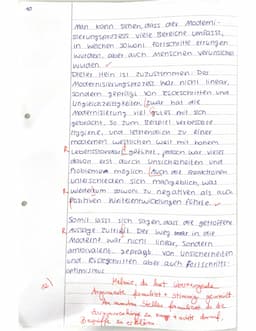 Man kann sehen, dass der Moderni-
sierungsprozess viele Bereiche umfasst,
in welchen sowohl Fortschritte errungen
wurden, aber auch Menschen verunsichert
wurden.
Dieter Hein ist zuzustimmen: Der
Modernisierungsprozess war nicht linear,
sondern geprägt von Rückschritten und
Ungleichzeitigkeiten. Zwar hat die
Modernisierung viel gutes mit sich
gebracht, so zum Beispiel verbesserte
Hygiene, und letztendlich zu einer
modernen westlichen Welt mit hohem
R Lebensstandard geführt, jedoch war vieles
davon erst durch Unsicherheiten und
Probleme möglich. Auch die Reaktionen
unterschieden sich maßgeblich, was
R wiederum sowohl zu negativen als auch
positiven Weiterentwicklungen führte.
Somit lässt sich sagen, dass die getroffene
R Aussage zutrifft. Der Weg in die
Moderne war nicht linear, sondern
ambivalent, geprägt von Unsicherheiten
und Krisen aber auch Fortschritts-
optimismus.
du hast überzeugende
Argumente formuliert + stimmig
An manchen Stellen